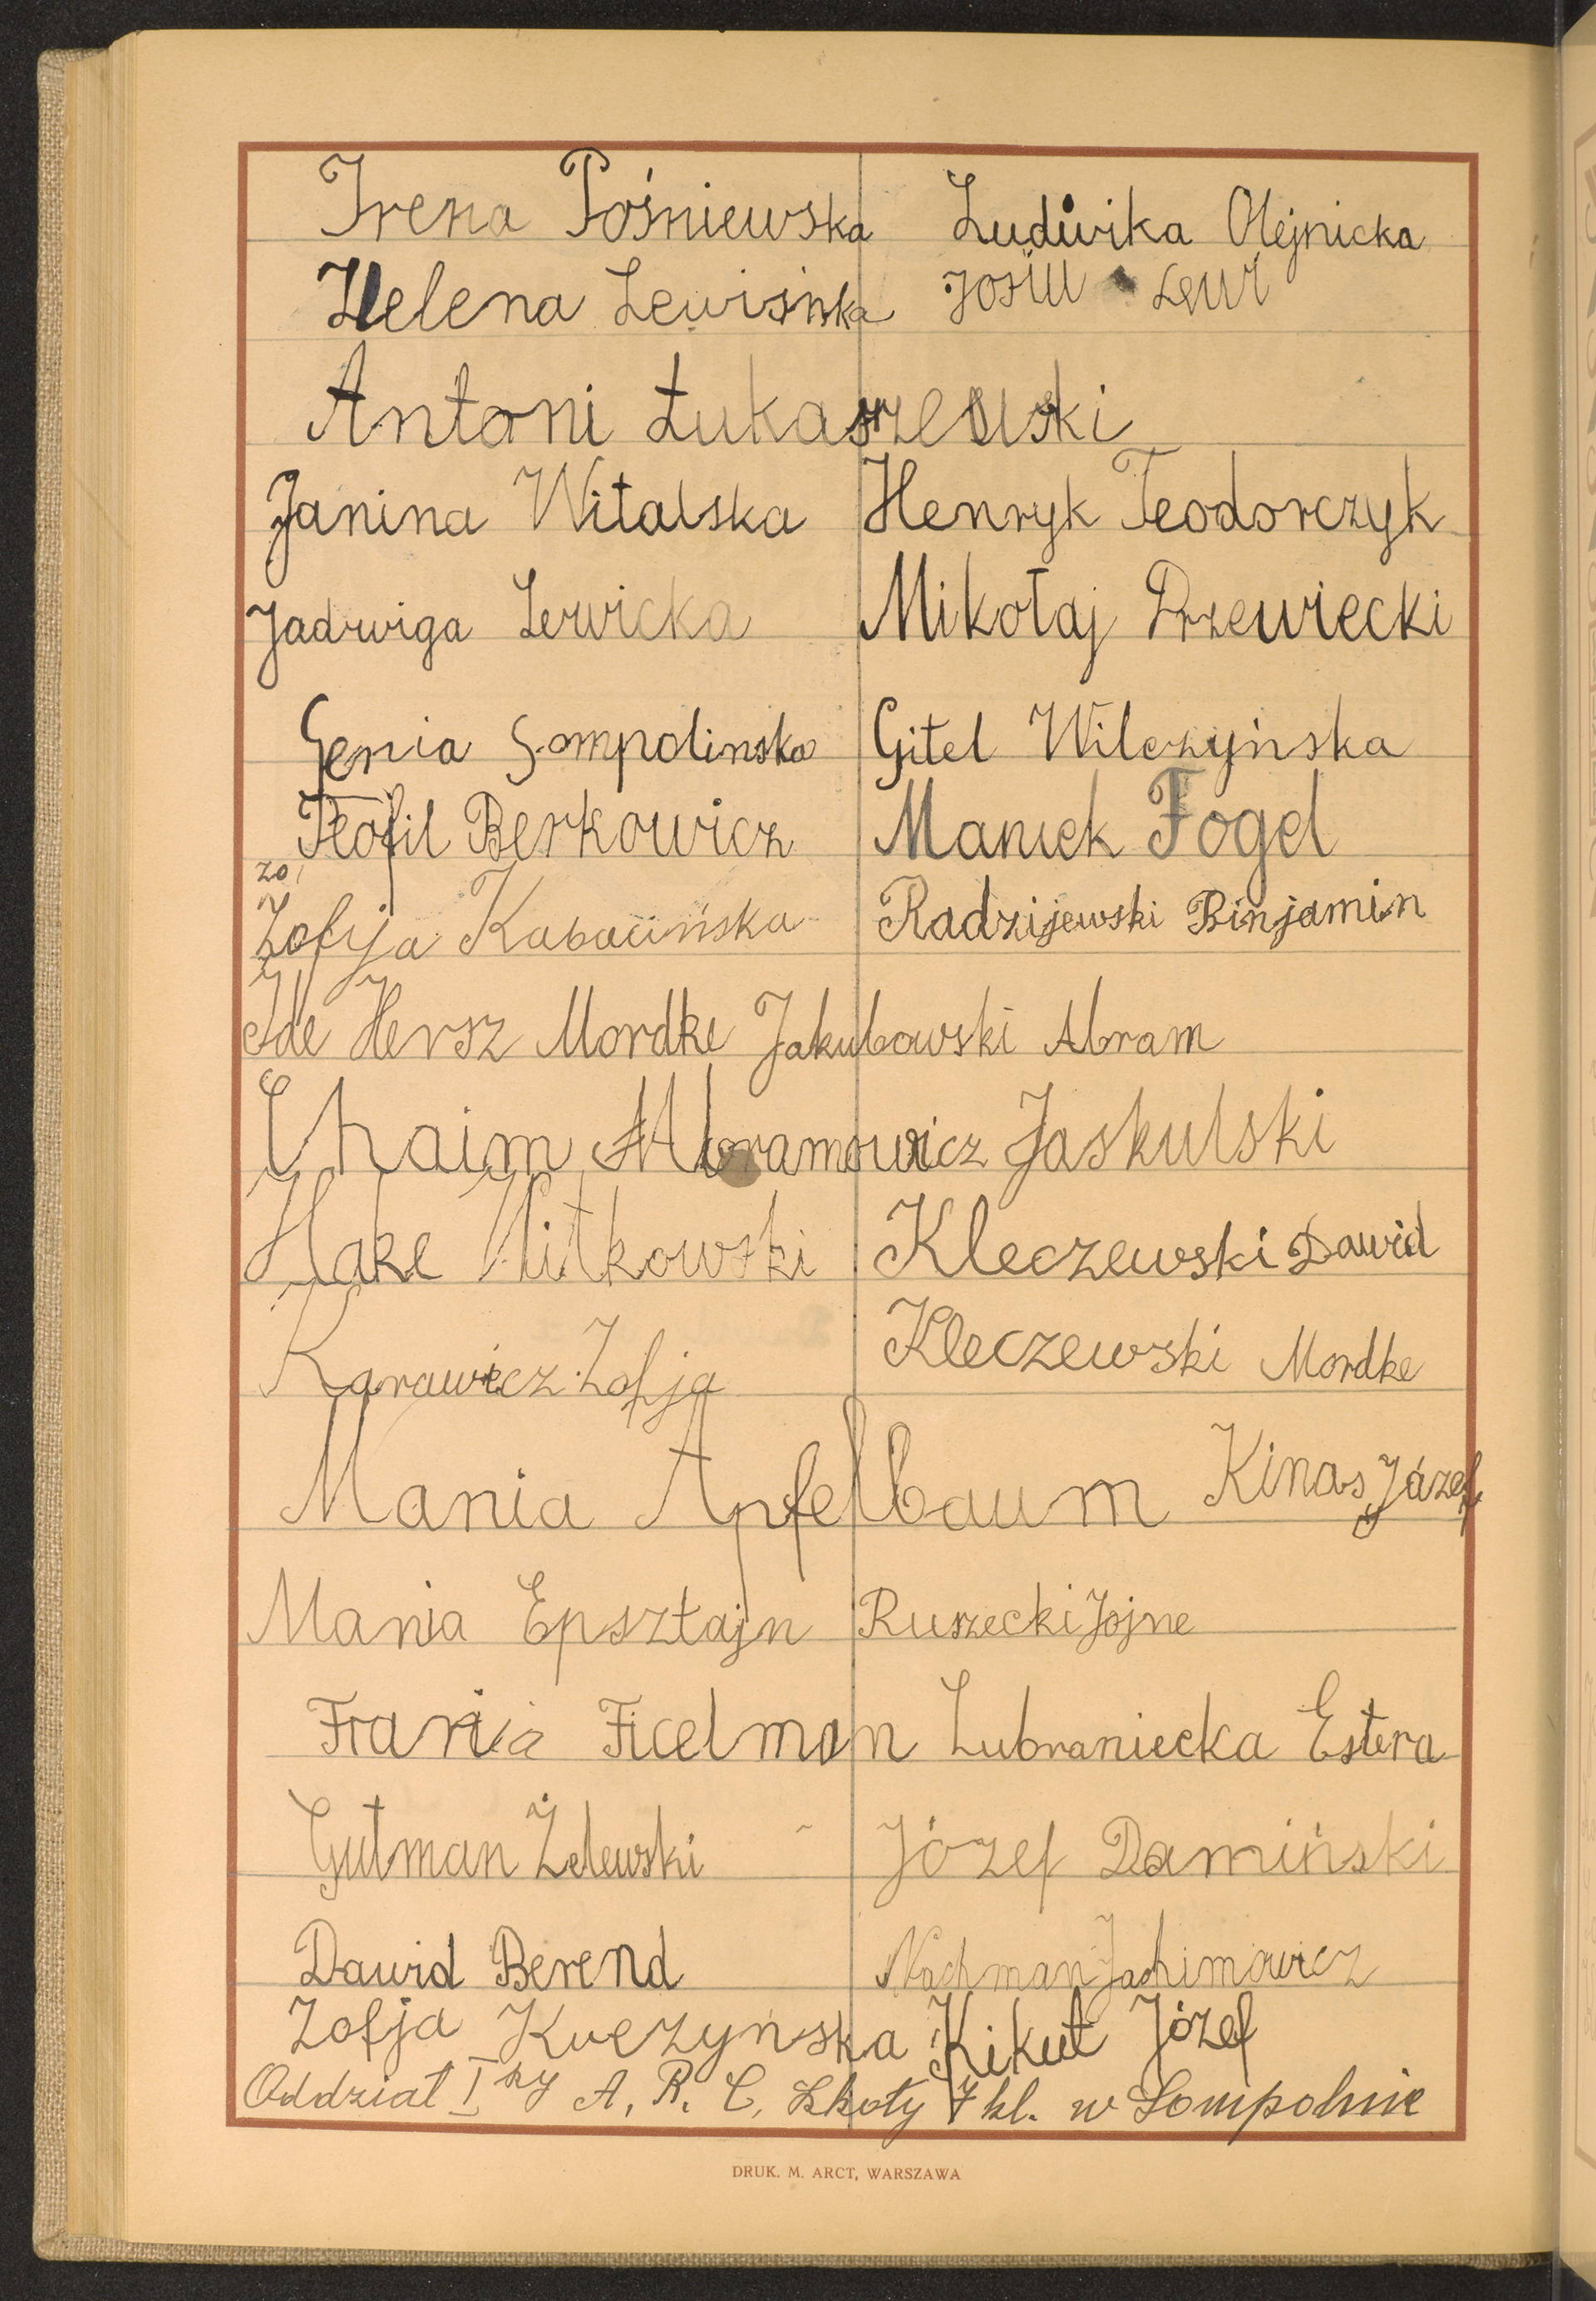 Irena Pośniewska Ludwika Olejnicka
Helena Lewińska Josiu Lewi
Antoni Łukaszewski
Janina Witalska Henryk Teodorczyk
Jadwiga Lewicka Mikołaj Drzewiecki
Genia Sompolinska Gitel Wilczyńska
Teofil Berkowicz Maniek Fogel
zo
Zofija Kabacińska Radzijewski Binjamin
Ide Hersz Mordke Jakubowski Abram
Chaim Abramowicz Jaskulski
Hake Witkowski Kleczewski Dawid
Karawicz Zofja Kleczewski Mordke
Mania Apfelbaum Kinas Józef
Mania Epsztajn Ruszecki Jojne
Frania Ficelman Lubraniecka Estera
Gutman Żelewski Józef Damiński
Dawid Berend Nachman Jachimowicz
Zofja Kuczyńska Kikut Józef
Oddział I szy A, B, C, Szkoły 7 kl. w Sompolnie
DRUK. M. ARCT, WARSZAWA